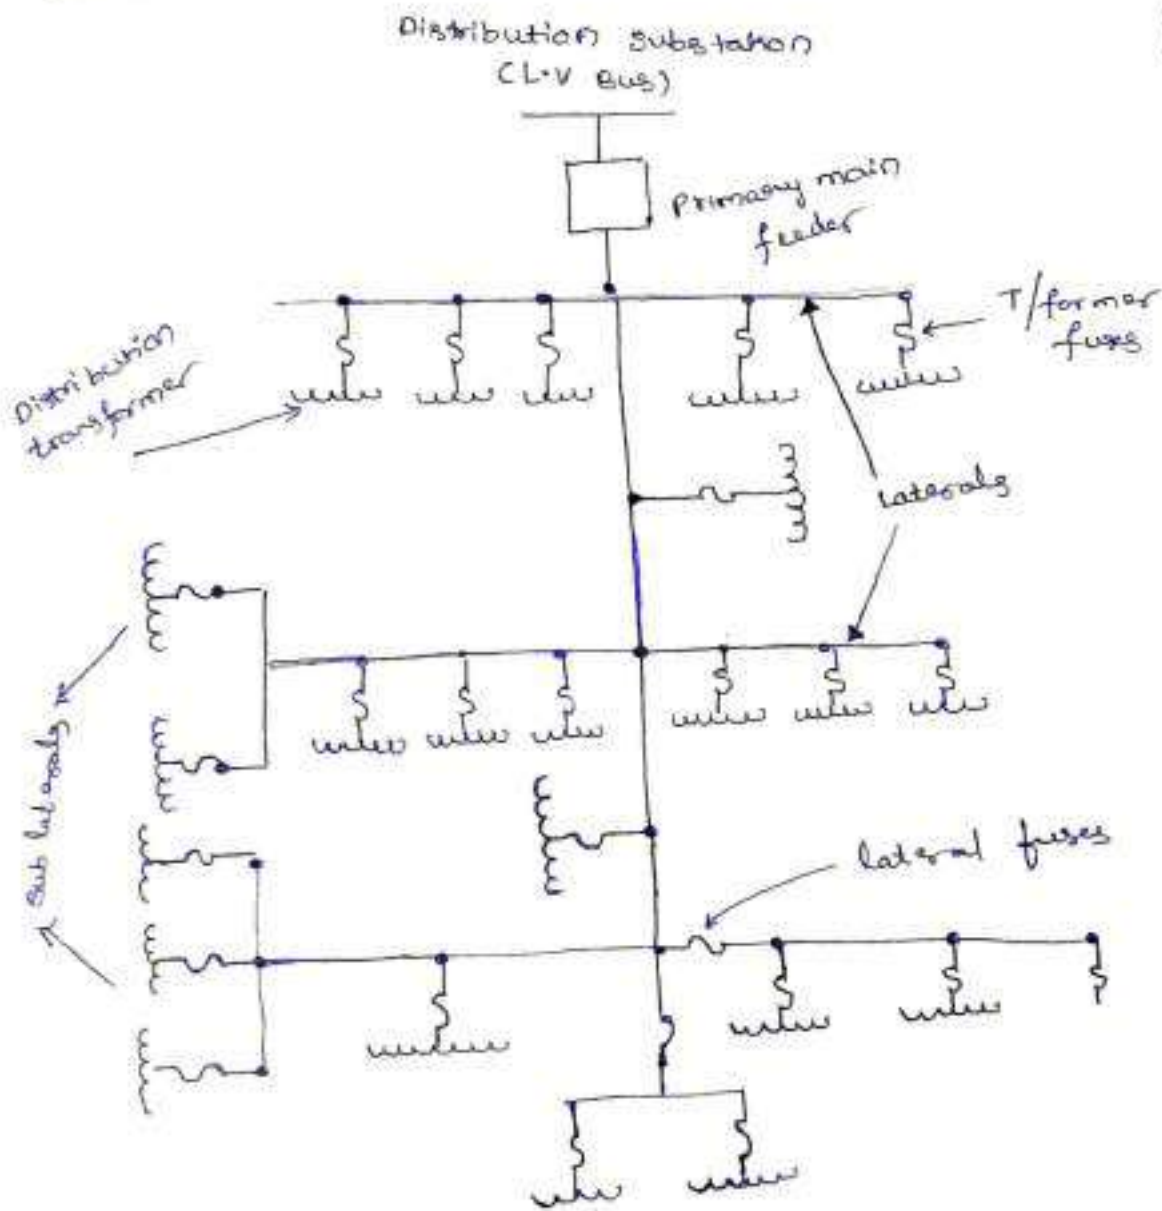 Distribution Substation
(L.V Bus)
Primary main
feeder
T/former
fuses
Distribution
transformer
Laterals
Sub laterals
lateral fuses